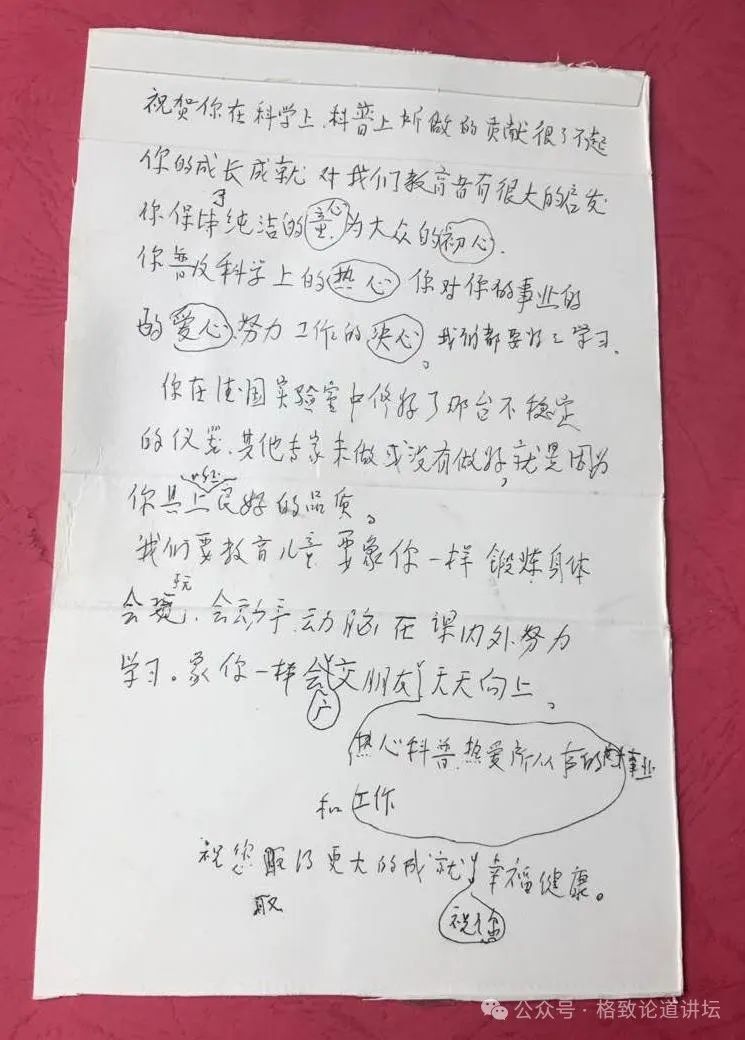 祝贺你在科学上、科普上所做的贡献很了不起
你的成长成就对我们教育者有很大的启发
你保持纯洁的童心、为大众的初心、
你普及科学上的热心 你对你的事业的
的爱心、努力工作的决心。我们都要好好学习、
你在德国实验室中修好了那台不稳定
的仪器、其他专家未做或没有做好,就是因为
你具上良好的品质。
我们要教育儿童要象你一样锻炼身体
会玩、会动手、动脑在课内外努力
学习。象你一样广交朋友天天向上。
热心科普、热爱所从事的事业
和工作
祝您取得更大的成就!祝您幸福健康。
公众号·格致论道讲坛